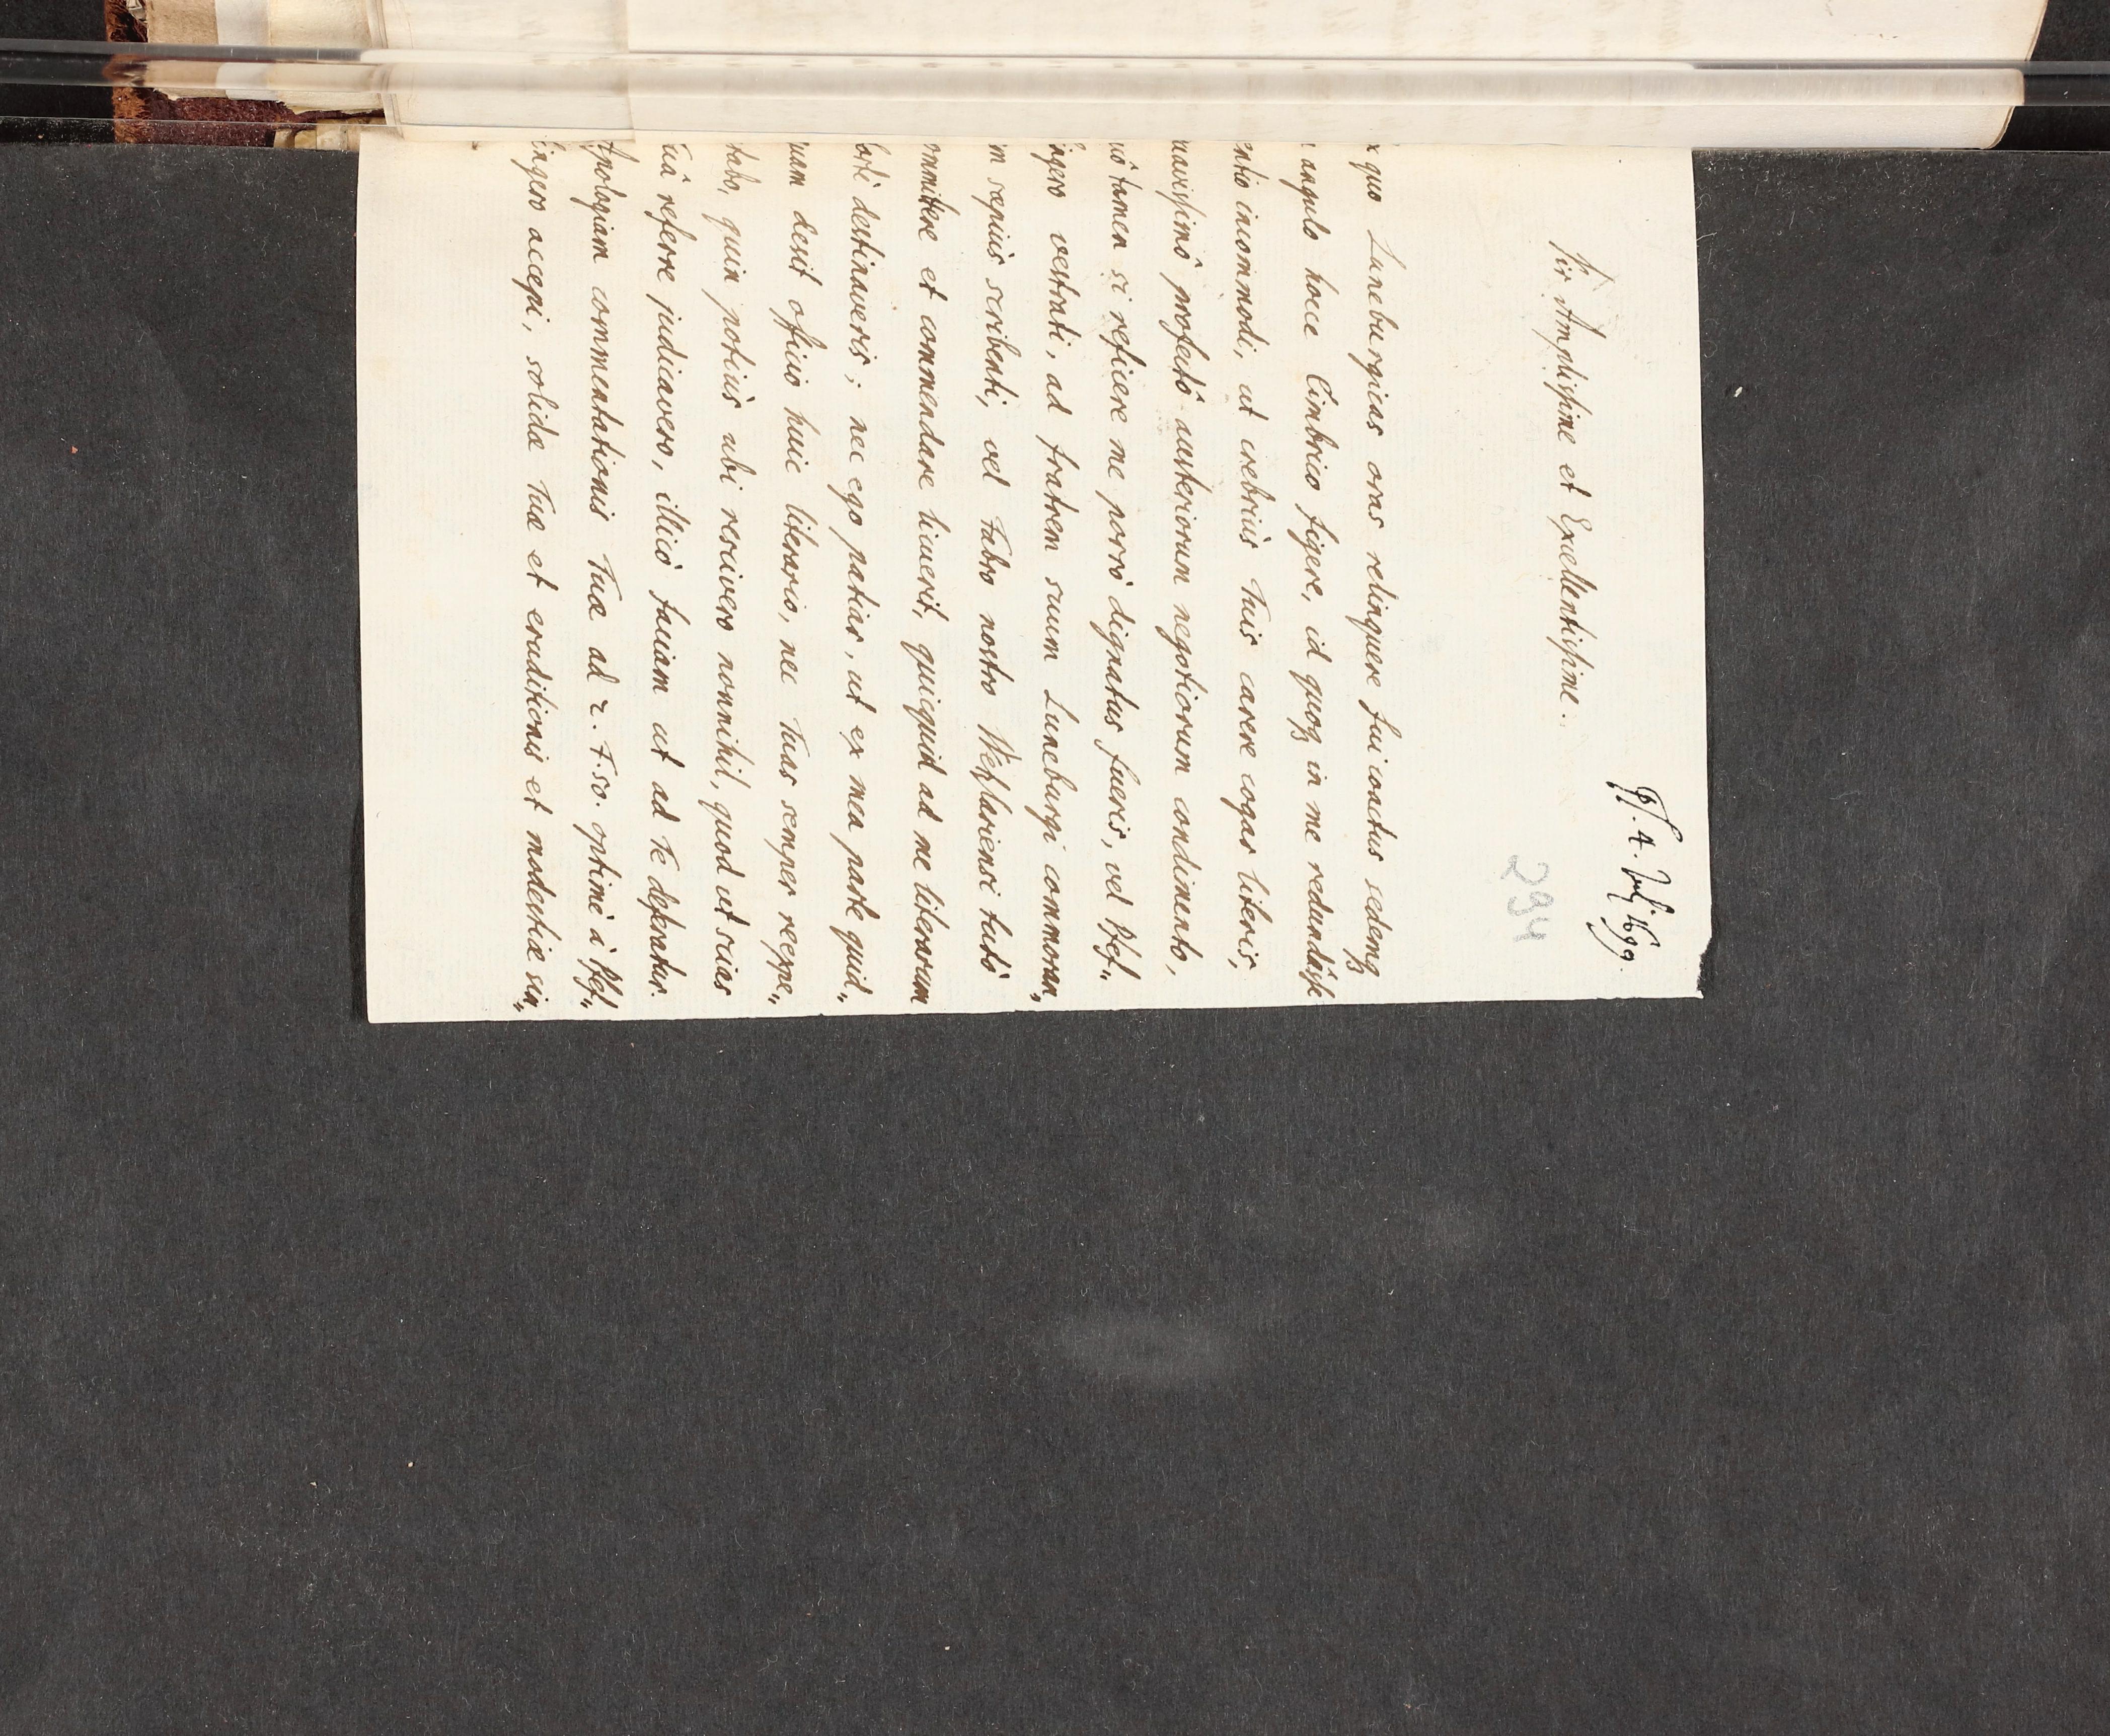 Pf. 4. Jul. 1699.
294
Vir Amplissime et Excellentissime.
x quo Luneburgicas oras relinquere fui coactus sedemq
angulo hocce Cimbrico figere, id quoq in me redundasse
entio incommodi, ut crebriùs Tuis carere cogar literis,
uavissimô profectô austeriorum negotiorum condimento,
uô tamen si reficere me porrò dignatus fueris, vel Pfef„
ingero vestrati, ad fratrem suum Luneburgi commoran„
m sæpiùs scribenti, vel Fabro nostro Wetzlariensi tutò
ommittere et commendare licuerit, quicquid ad me literarum
fortè destinaveris; nec ego patiar, ut ex mea parte quid„
uam desit officio huic literario, nec Tuas semper reexpe„
tabo, quin potiùs ubi rescivero nonnihil, quod ut scias
Tuâ referre judicavero, illicò faciam ut ad Te deferatur.
Apologiam commentationis Tuæ ad r. F. so. optimè à Pfef„
fingero accepi, solidæ Tuæ et eruditionis et modestiæ sin„